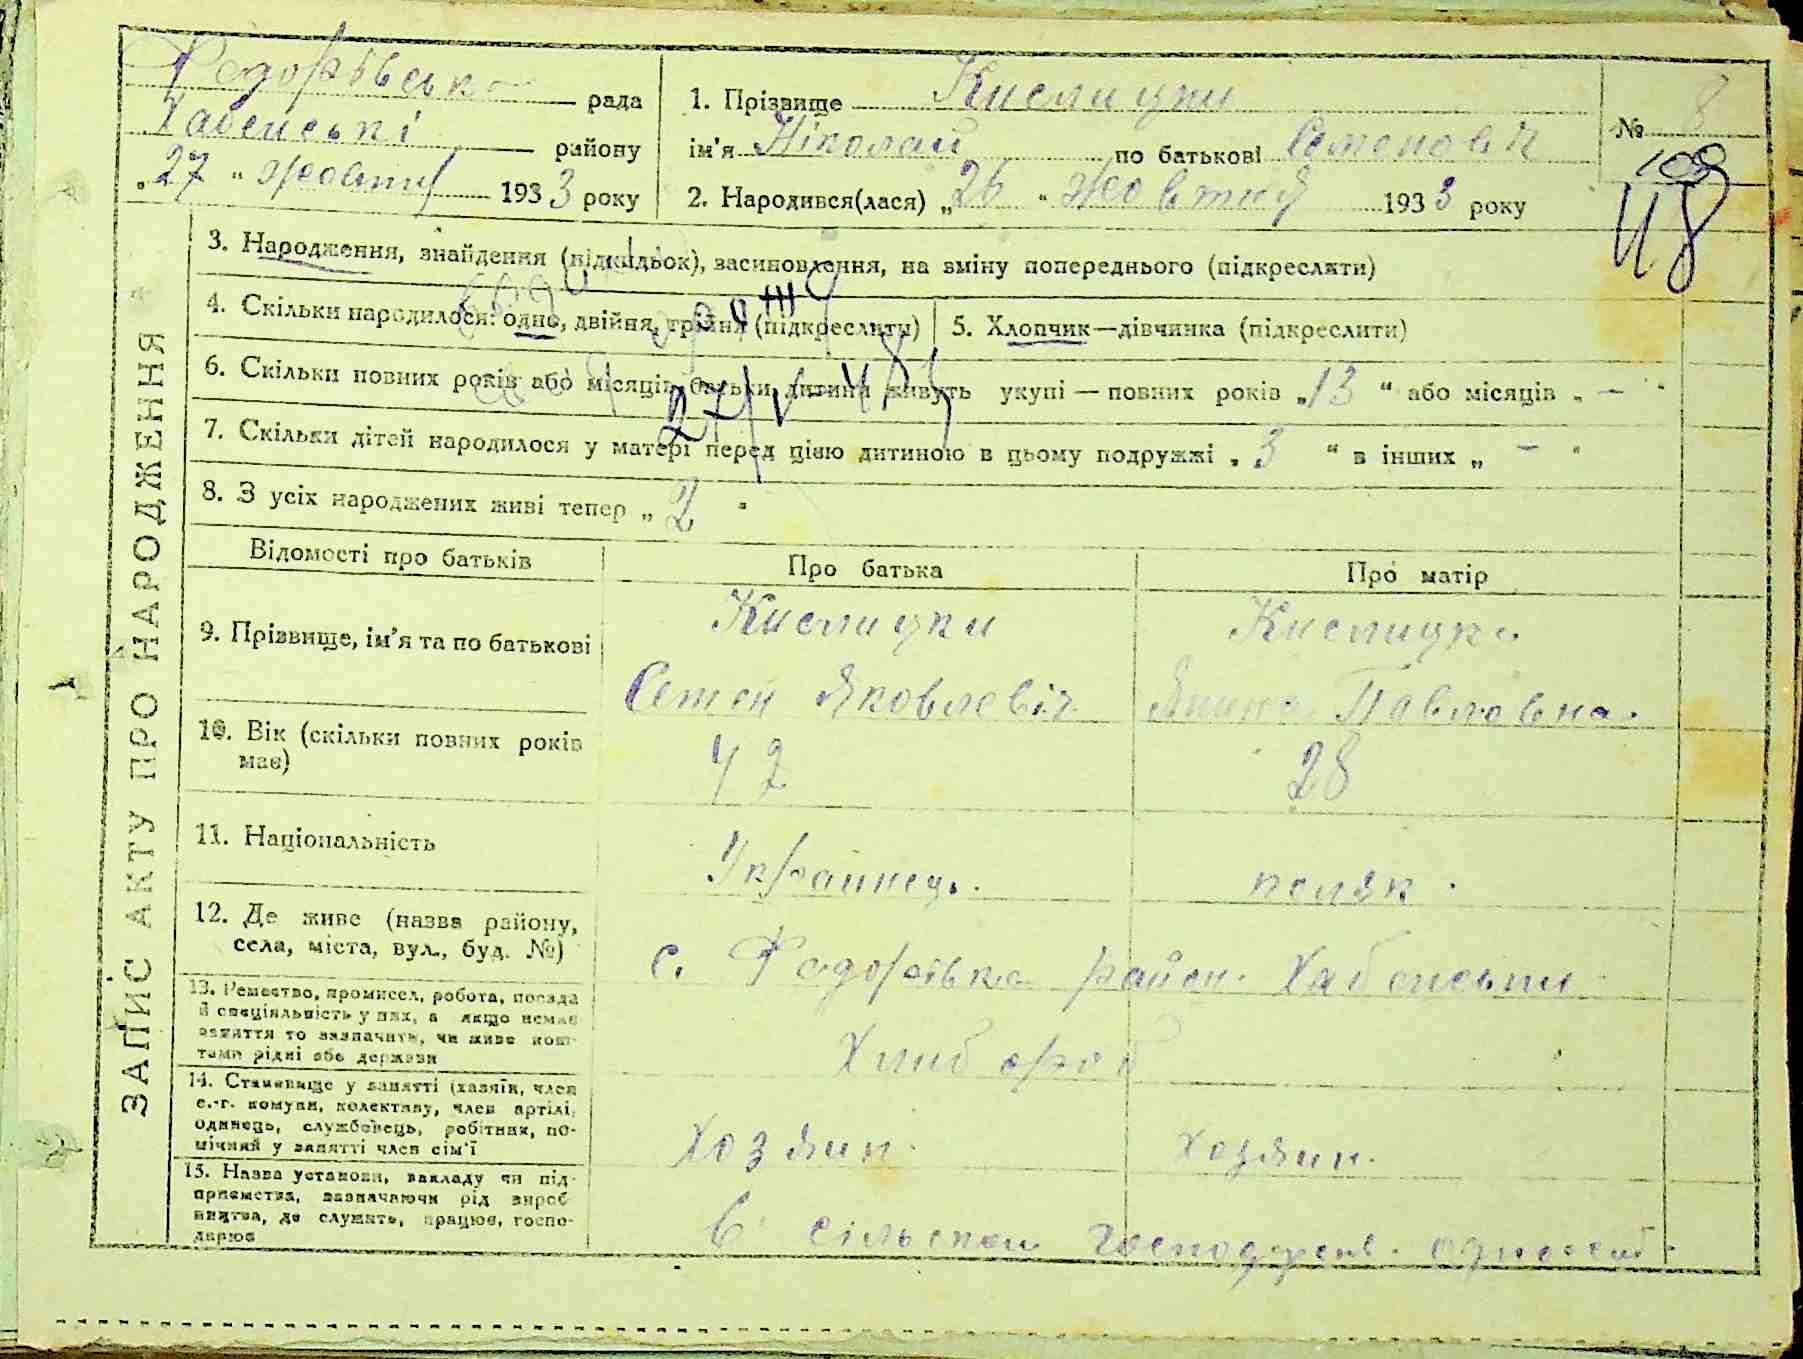 Федорівська рада
Хабенські району
„27“ жовтня 1933 року
1. Прізвище Кислицки
ім'я Ніколай по батькові Семеновіч
2. Народився(лася) „26“ жовтня 1933 року
№ 8
109
48
ЗАПИС АКТУ ПРО НАРОДЖЕННЯ
3. Народження, знайдення (підкидьок), засиновлення, на зміну попереднього (підкреслити)
4. Скільки народилося: одно, двійня, трійня (підкреслити)
5. Хлопчик—дівчинка (підкреслити)
6. Скільки повних років або місяців батьки дитини живуть укупі — повних років „13“ або місяців „—“
7. Скільки дітей народилося у матері перед цією дитиною в цьому подружжі „3“ в інших „—“
8. З усіх народжених живі тепер „2“
Відомості про батьків
Про батька
Про матір
9. Прізвище, ім'я та по батькові
Кислицки
Семен Яковлевіч
Кислицка
Павловна.
10. Вік (скільки повних років
має)
42
28
11. Національність
Украинець.
поляк.
12. Де живе (назва району,
села, міста, вул., буд. №)
с. Федорівка район. Хабенськи
13. Ремество, промисел, робота, посада
й спеціяльність у них, а якщо немає
заняття то зазначити, чи живе кош-
тами рідні або держави
Хлиб ороб
14. Становище у занятті (хазяїн, член
с.-г. комуни, колективу, член артілі,
одинець, службовець, робітник, по-
мічний у занятті член сім'ї
Хозяин.
хозяин.
15. Назва установи, закладу чи під-
приємства, зазначаючи рід вироб-
ництва, де служить, працює, госпо-
дарює
в сільском господрст.